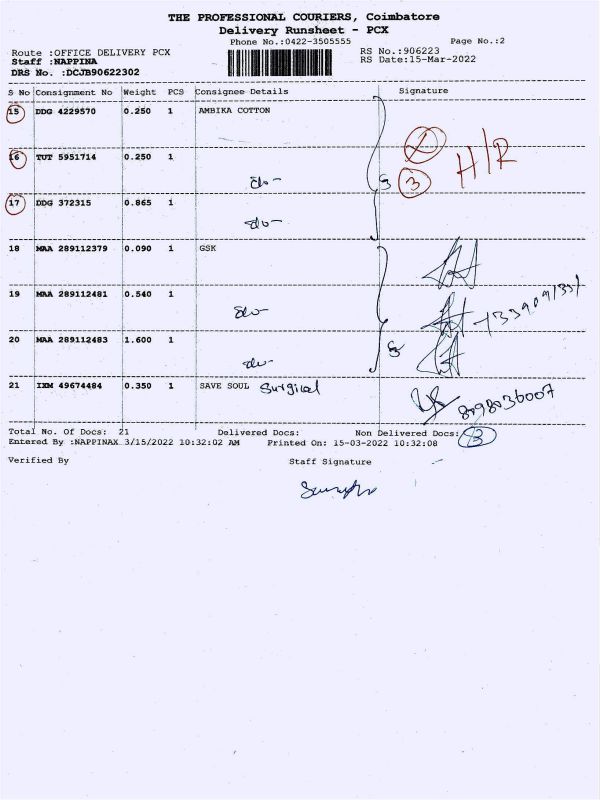 THE PROFESSIONAL COURIERS, Coimbatore
Delivery Runsheet - PCX
Phone No.:0422-3505555 Page No.:2
Route :OFFICE DELIVERY PCX RS No.:906223
Staff :NAPPINA RS Date:15-Mar-2022
DRS No. :DCJB90622302
S No Consignment No Weight PCS Consignee Details Signature
15 DDG 4229570 0.250 1 AMBIKA COTTON
H/R
16 TUT 5951714 0.250 1
3
17 DDG 372315 0.865 1
18 MAA 289112379 0.090 1 GSK
19 MAA 289112481 0.540 1
20 MAA 289112483 1.600 1
21 IXM 49674484 0.350 1 SAVE SOUL Surgical
8098036007
Total No. Of Docs: 21 Delivered Docs: Non Delivered Docs: 3
Entered By :NAPPINAX 3/15/2022 10:32:02 AM Printed On: 15-03-2022 10:32:08
Verified By Staff Signature